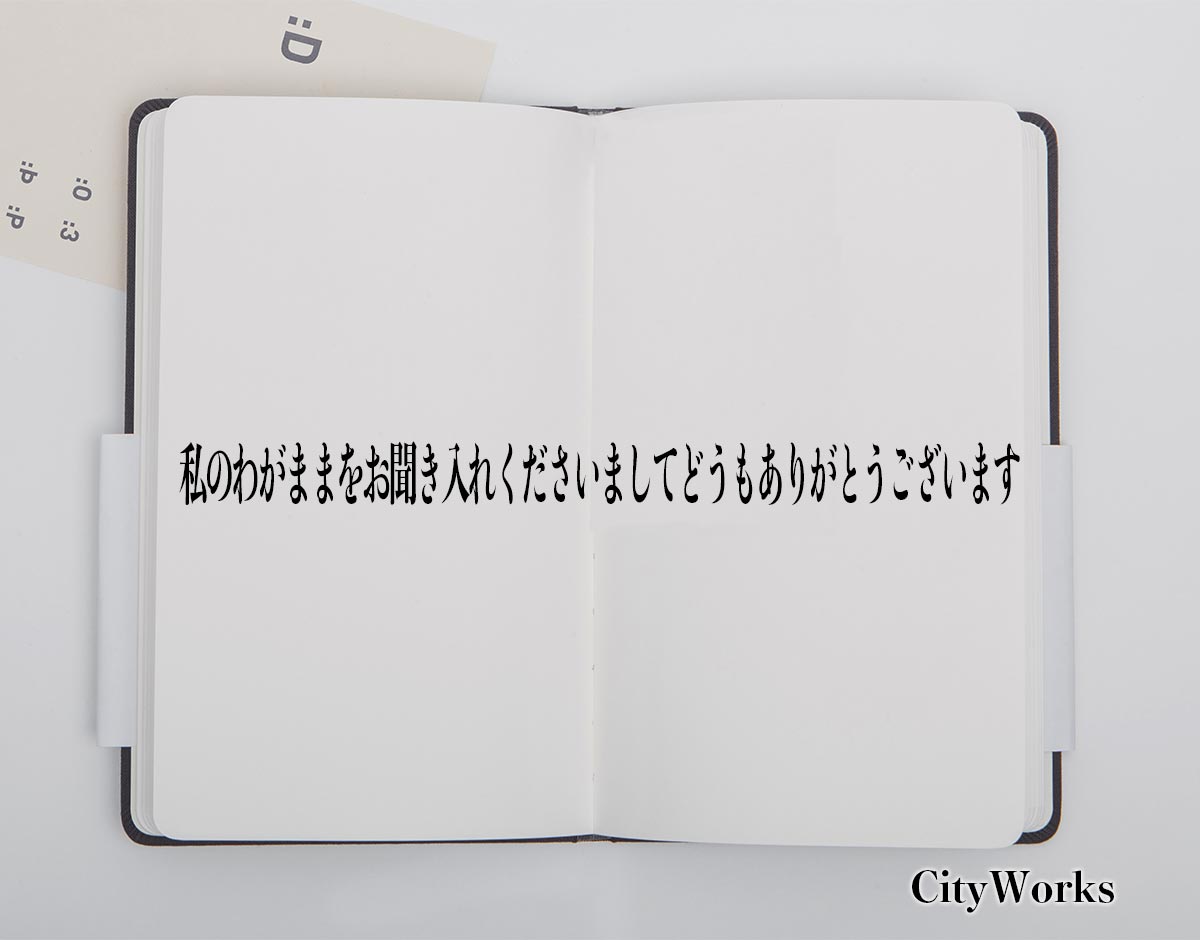 :D
:P
:O
:P
:3
私のわがままをお聞き入れくださいましてどうもありがとうございます
CityWorks